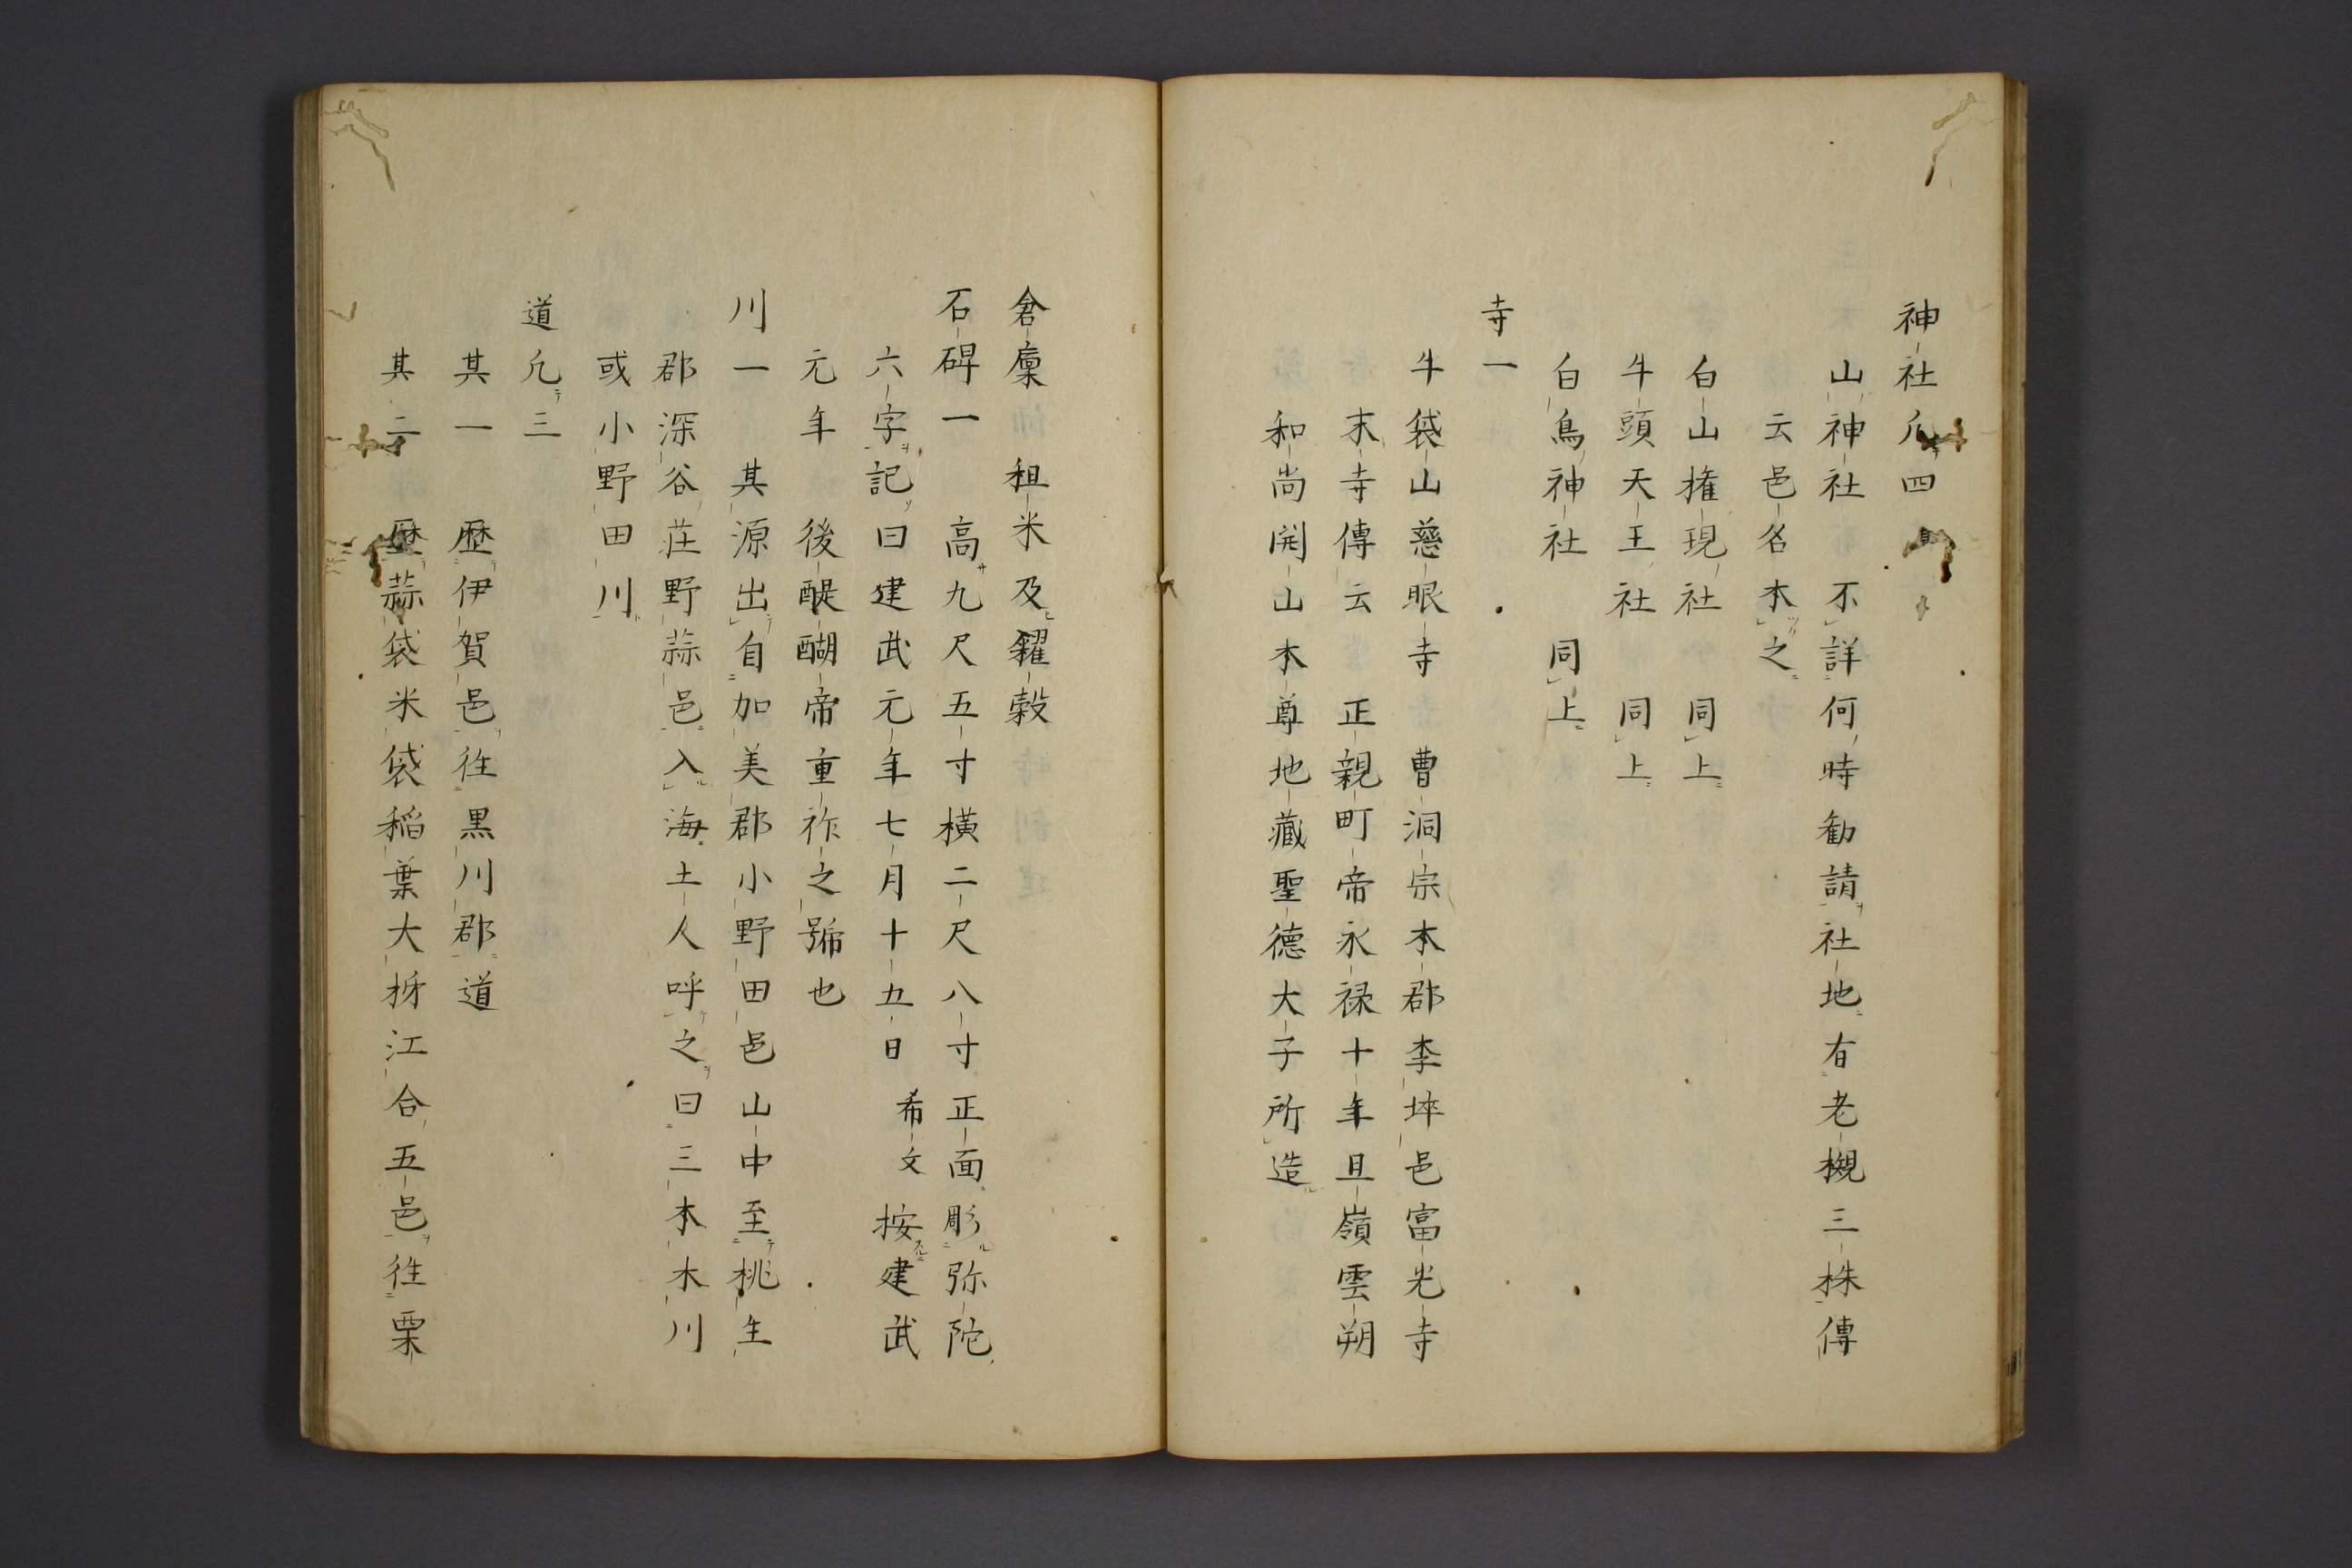 神社凢四
山神社　不詳何時勧請社地有老槻三株傳
云邑名本之
白山権現社　同上
牛頭天王社　同上
白鳥神社　同上
寺一
牛袋山慈眼寺　曹洞宗本郡李埣邑富光寺
末寺傳云　正親町帝永禄十年旦嶺雲朔
和尚開山本尊地藏聖徳大子所造
倉廩　租米及糴穀
石碑一　高九尺五寸横二尺八寸正面彫弥陀
六字記曰建武元年七月十五日　希文　按建武
元年　後醍醐帝重祚之號也
川一　其源出自加美郡小野田邑山中至桃生
郡深谷荘野蒜邑入海土人呼之曰三本木川
或小野田川
道凢三
其一　歴伊賀邑往黒川郡道
其二　歴蒜袋米袋稲葉大柳江合五邑往栗